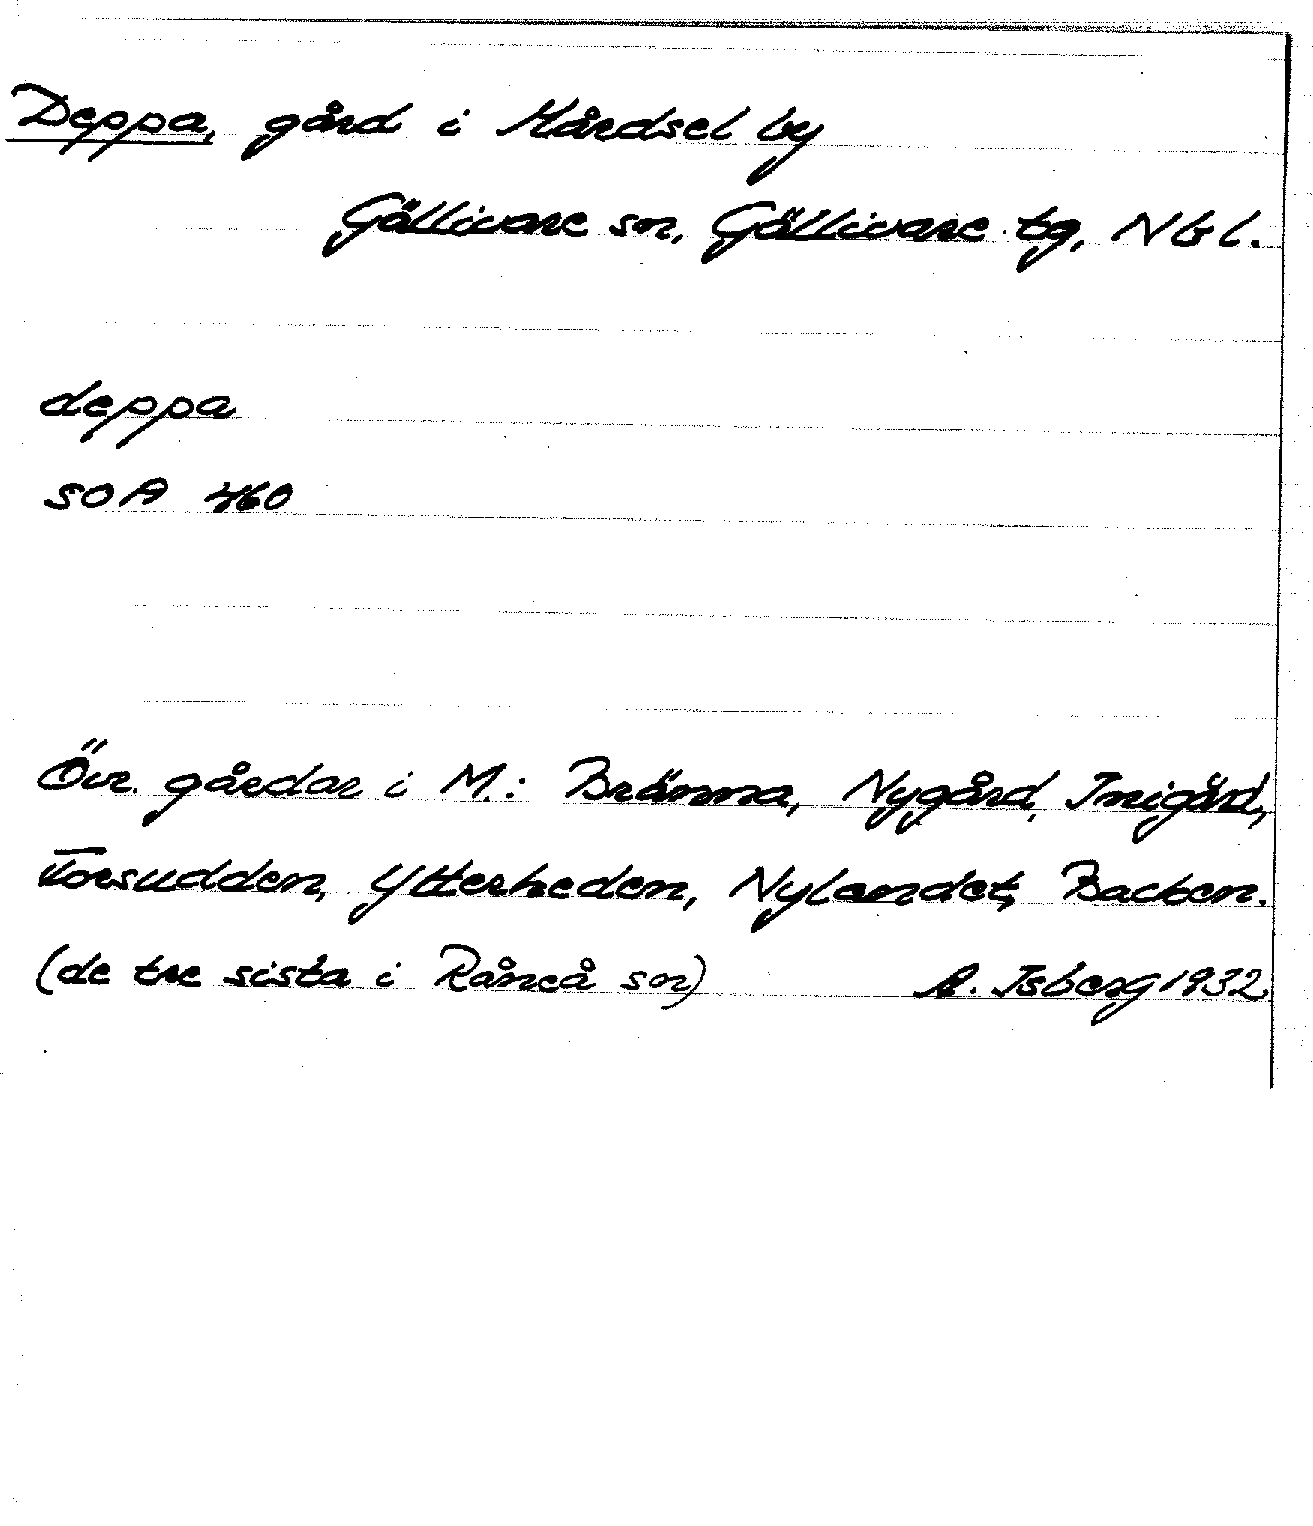 Deppa, gård i Mårdsel by
Gällivare sn, Gällivare tg, Nbl.
deppa
SOA 460
Övr. gårdar i M.: Bränna, Nygård,
Forsudden, Ytterheden, Nylandet, Backen.
(de tre sista i Råneå sn) A. Isberg 1932